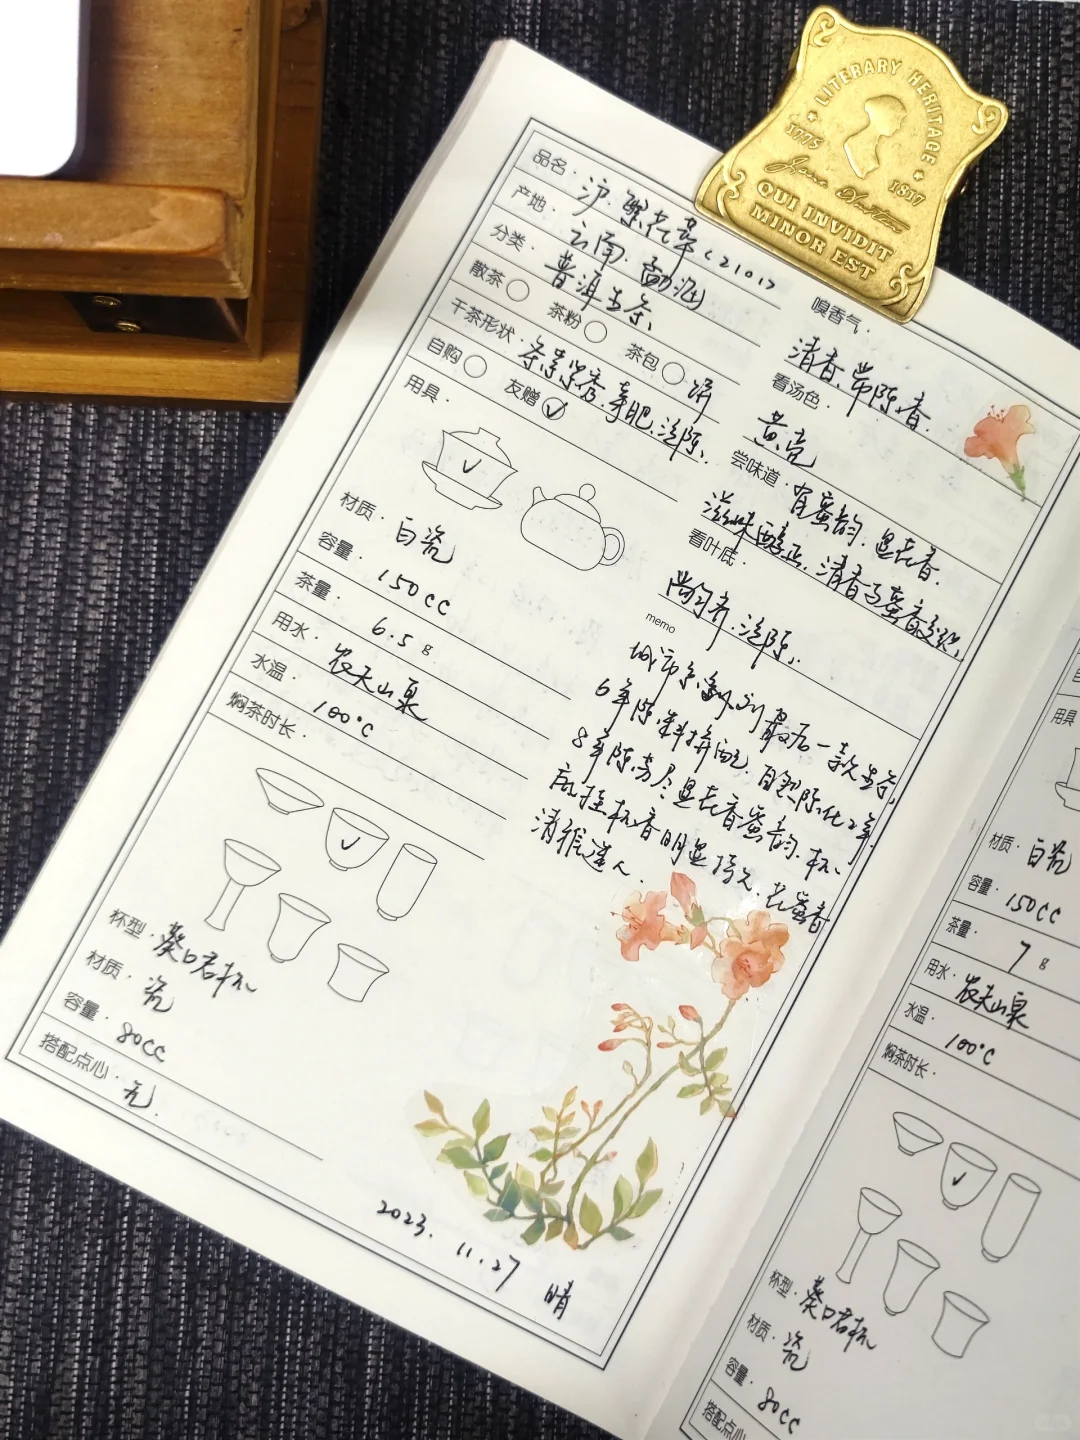 LITERARY HERITAGE
1775
1817
QUI INVIDIT
MINOR EST
品名. 沪.繁花萃<2101>
产地. 云南.勐海
分类. 普洱生茶
散茶 茶粉 茶包 饼
干茶形状. 条索紧秀.芽肥.泛陈.
自购 友赠 ✓
用具.
材质. 白瓷
容量. 150cc
茶量. 6.5g
用水. 农夫山泉
水温. 100°C
焖茶时长.
杯型. 葵口君杯
材质. 瓷
容量. 80cc
搭配点心. 无.
嗅香气.
清香.带陈香.
看汤色.
黄亮
尝味道. 有蜜韵.显花香.
滋味醇正.清香与蜜香交织.
看叶底.
尚匀齐.泛陈.
memo
城市系列最后一款生茶,
6年陈料拼配.自然陈化2年.
8年陈芳尽显花香蜜韵.杯
底挂杯香明显持久.花蜜香
清雅迷人.
2023.11.27 晴
用具
材质. 白瓷
容量. 150cc
茶量. 7g
用水. 农夫山泉
水温. 100°C
焖茶时长.
杯型. 葵口君杯
材质. 瓷
容量. 80cc
搭配点心